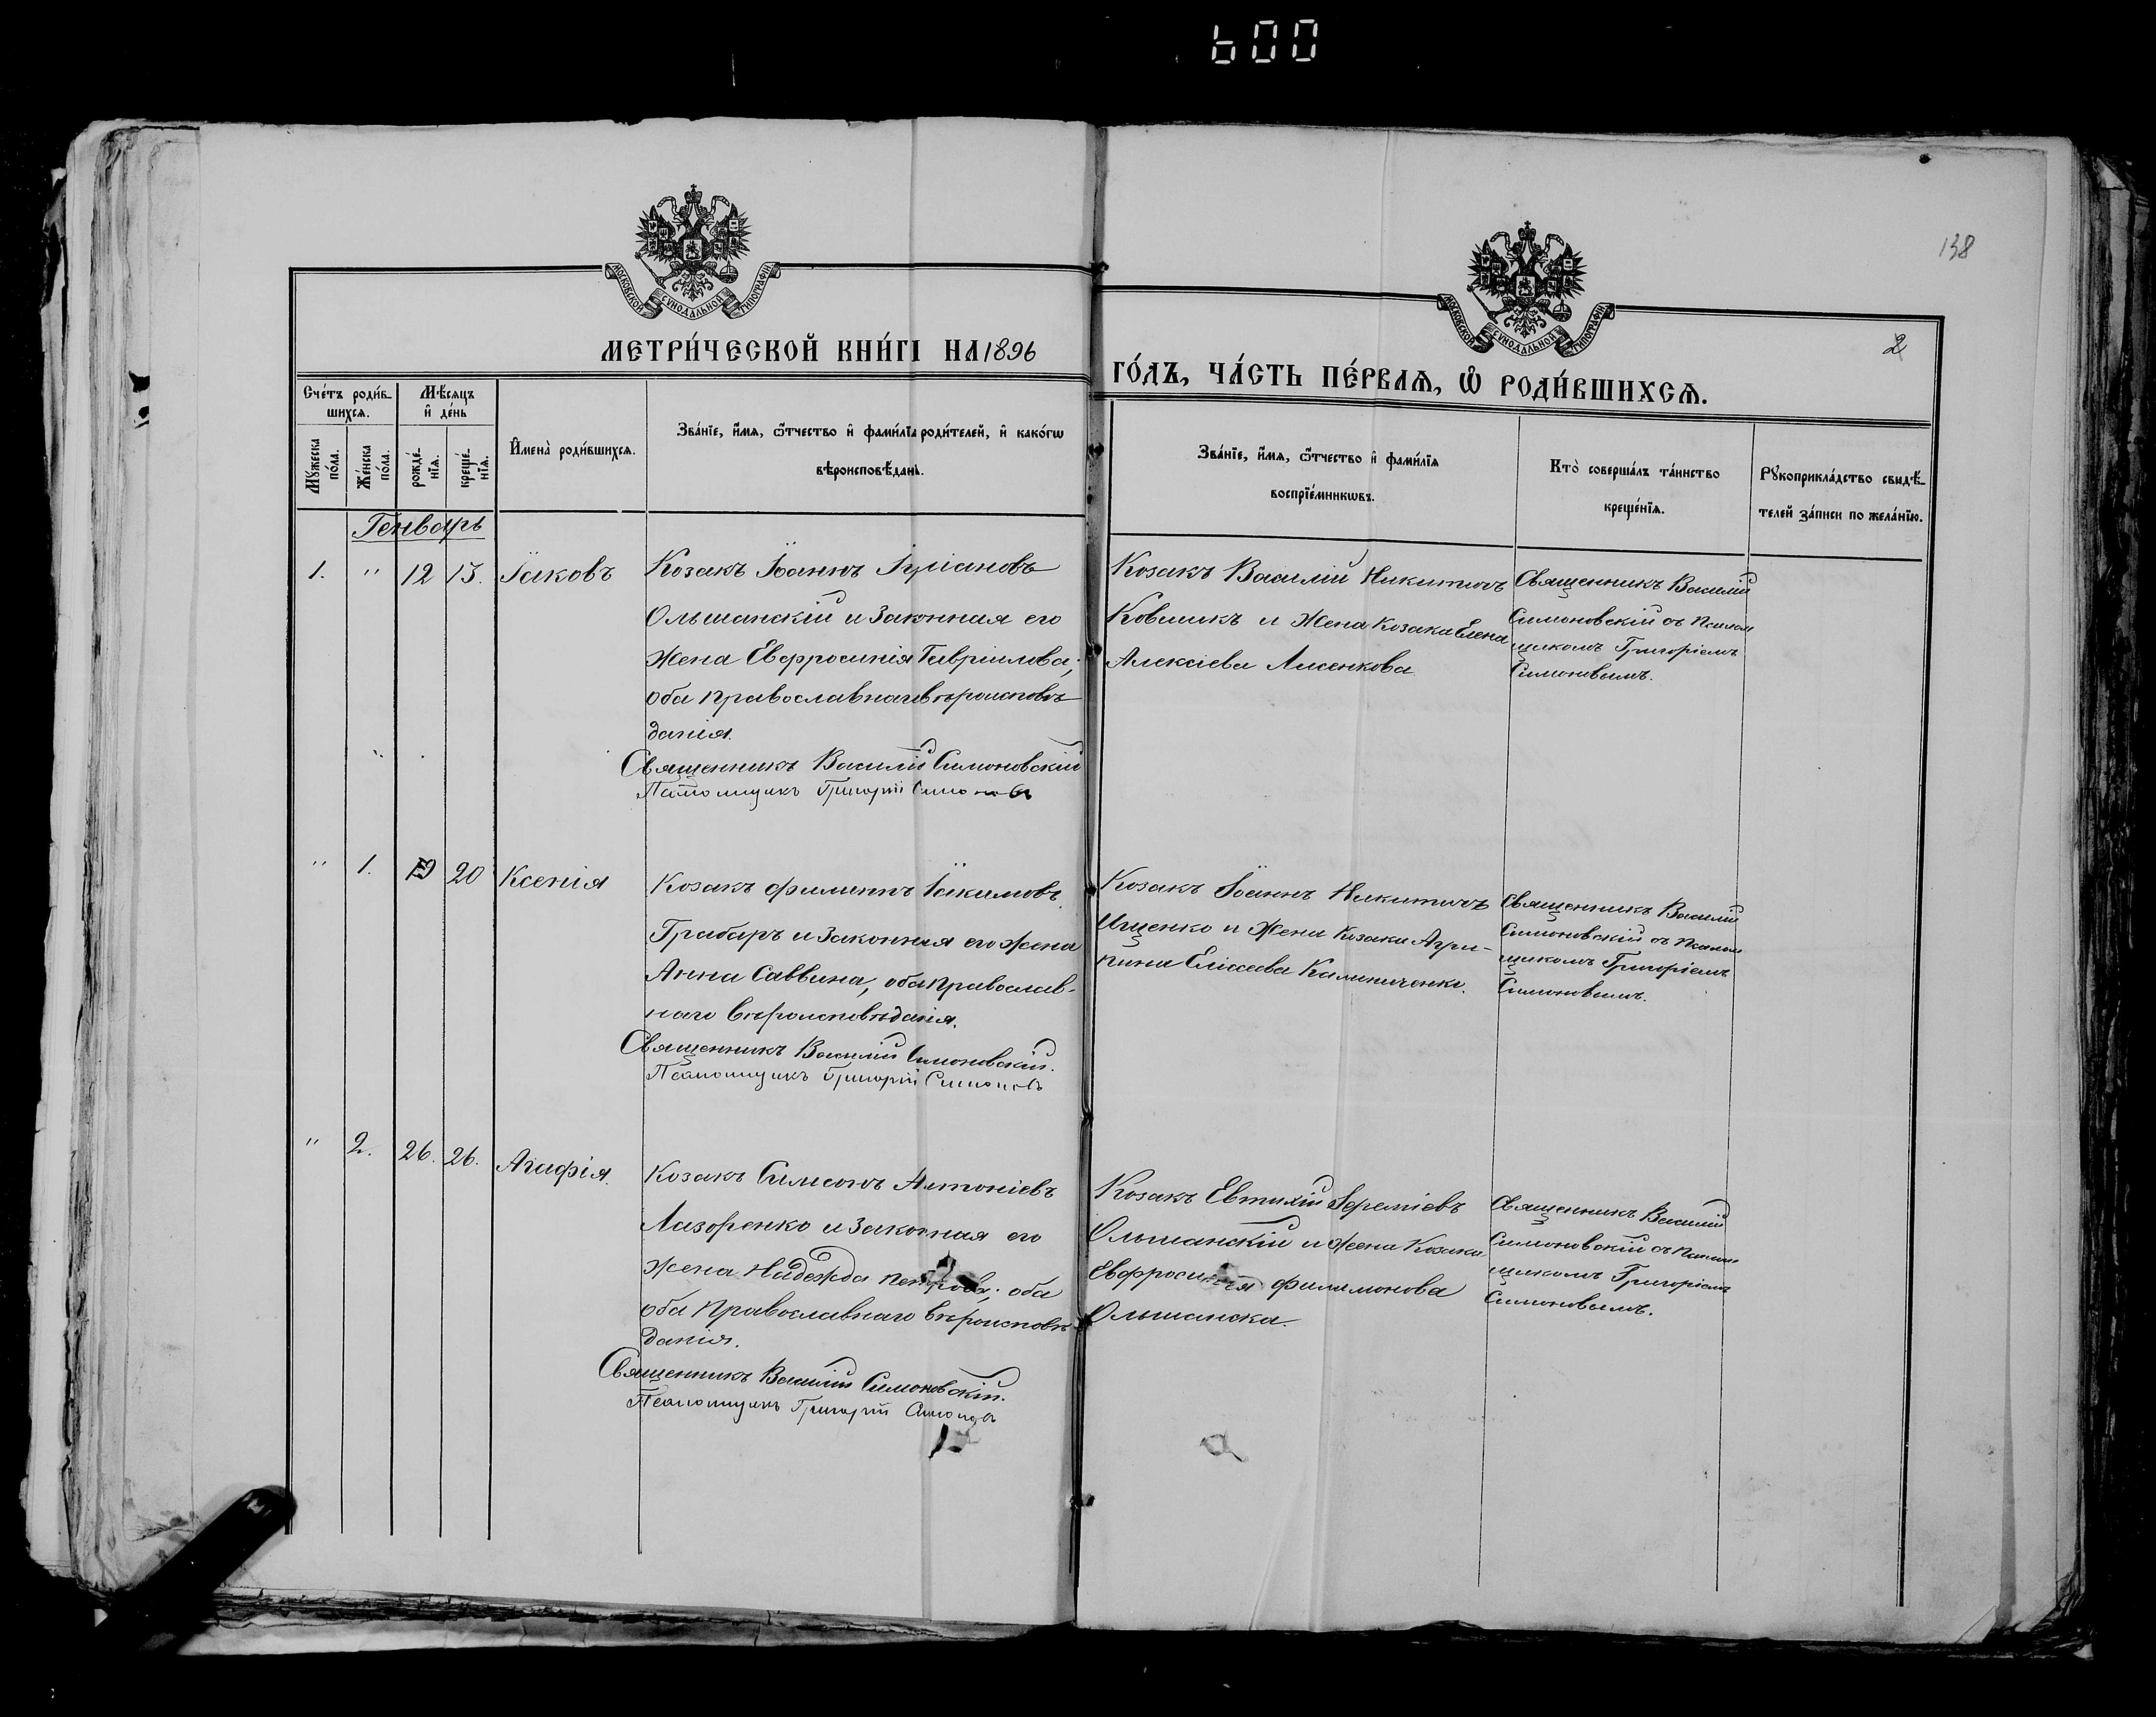 600
138
МОСКОВСКОЙ СѴНОДАЛЬНОЙ ТИПОГРАФІИ
МОСКОВСКОЙ СѴНОДАЛЬНОЙ ТИПОГРАФІИ
МЕТРИ́ЧЕСКОЙ КНИ́ГІ НА 1896
ГО́ДЪ, ЧА́СТЬ ПЕ́РВАѦ, Ѽ РОДИ́ВШИХСѦ.
2
Сче́тъ роди́в-
шихсѧ.
Мѣ́сѧцъ
и҆ де́нь
Мꙋ́жеска
по́ла.
Же́нска
по́ла.
рожде́-
нїѧ.
креще́-
нїѧ.
И҆мена̀ роди́вшихсѧ.
Зва́нїе, и҆́мѧ, ѻ҆́тчество и҆ фами́лїа роди́телей, и҆ како́гѡ
вѣроисповѣ́данї.
Зва́нїе, и҆́мѧ, ѻ҆́тчество и҆ фами́лїѧ
воспрїе́мникѡвъ.
Кто̀ соверша́лъ та́инство
креще́нїѧ.
Рꙋкоприкла́дство свидѣ́-
телей за́писи по жела́нїю.
Генварь
1. " 12 13. Іаковъ
Козакъ Іоаннъ
Ольшанскій и законная его
жена Евфросинія Гавріилова;
оба православнаго вѣроисповѣ
данія.
Священникъ Василій Симоновскій
Псаломщикъ Григорій Симоновъ
Козакъ Василій Никитичъ
Ковшикъ и жена козака Елена
Алексіева Лисенкова
Священникъ Василій
Симоновскій съ Псалом
щикомъ Григоріемъ
Симоновымъ.
" 1. 19 20 Ксенія
Козакъ Филиппъ Іакимовъ
Грабаръ и законная его жена
Анна Саввина, оба православ-
наго вѣроисповѣданія.
Священникъ Василій Симоновскій.
Псаломщикъ Григорій Симоновъ
Козакъ Іоаннъ Никитичъ
Ищенко и жена козака Агри-
пина Еліссеева Калиниченко.
Священникъ Василій
Симоновскій съ Псалом
щикомъ Григоріемъ
Симоновымъ.
" 2. 26. 26. Агафія.
Козакъ Симеонъ Антоніевъ
Лазоренко и законная его
жена Надежда Петрова; оба
оба православнаго вѣроисповѣ
данія.
Священникъ Василій Симоновскій.
Псаломщикъ Григорій Симоновъ
Козакъ Евтихій Іереміевъ
Ольшанскій и жена козака
Евфросинія Филимонова
Ольшанска.
Священникъ Василій
Симоновскій съ Псалом
щикомъ Григоріемъ
Симоновымъ.